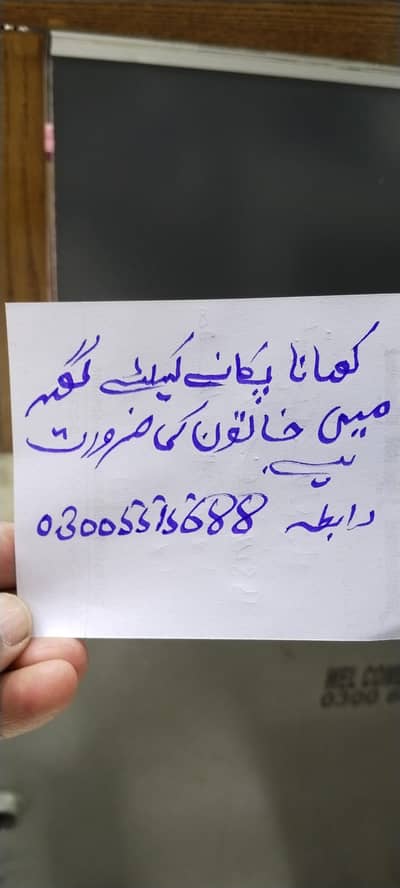 کھانا پکانے کیلئے گھر
میں خاتون کی ضرورت
ہے۔
رابطہ 03005515688
WEL COM
0300